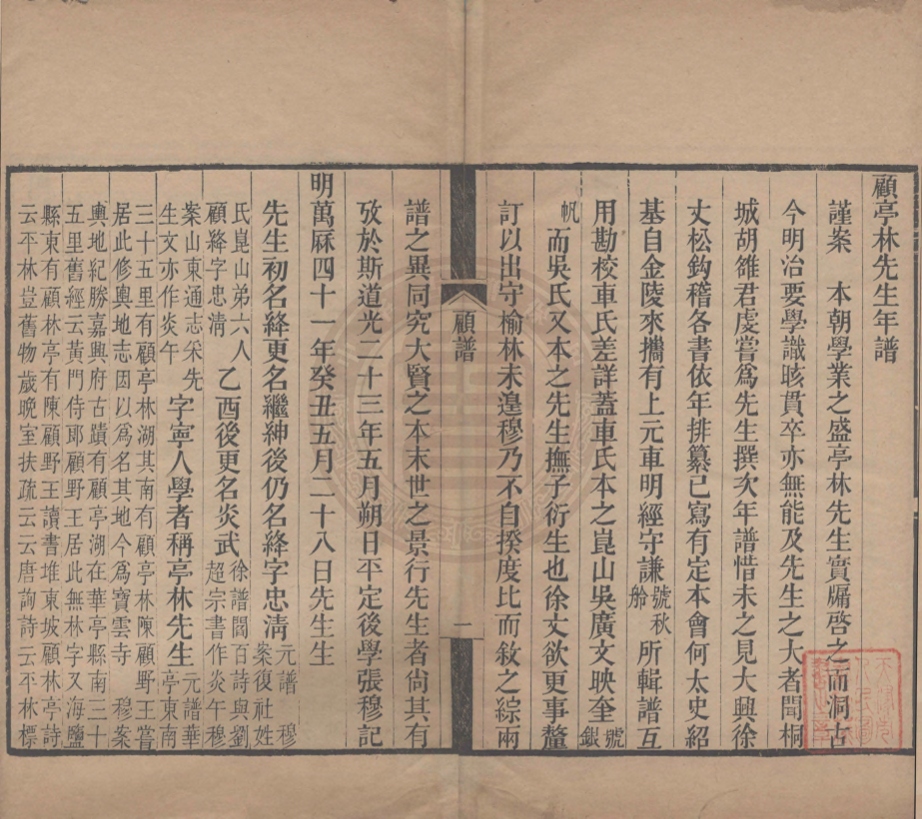 顧亭林先生年譜
謹案　本朝學業之盛亭林先生實牖啓之而洞古
今明治要學識賅貫卒亦無能及先生之大者聞桐
城胡雒君虔嘗爲先生撰次年譜惜未之見大興徐
丈松鈎稽各書依年排纂已寫有定本會何太史紹
基自金陵來攜有上元車明經守謙號秋舲所輯譜互
用勘校車氏差詳蓋車氏本之崑山吳廣文映奎號銀
帆而吳氏又本之先生撫子衍生也徐丈欲更事釐
訂以出守榆林未遑穆乃不自揆度比而敘之綜兩
顧譜
一
譜之異同究大賢之本末世之景行先生者尙其有
攷於斯道光二十三年五月朔日平定後學張穆記
明萬厤四十一年癸丑五月二十八日先生生
先生初名絳更名繼紳後仍名絳字忠淸元譜穆案復社姓
氏崑山弟六人顧絳字忠淸乙酉後更名炎武徐譜閻百詩與劉超宗書作炎午穆
案山東通志采先生文亦作炎午字寧人學者稱亭林先生元譜華亭東南
三十五里有顧亭林湖其南有顧亭林陳顧野王嘗
居此修輿地志因以爲名其地今爲寶雲寺　穆案
輿地紀勝嘉興府古蹟有顧亭湖在華亭縣南三十
五里舊經云黃門侍郎顧野王居此無林字又海鹽
縣東有顧林亭有陳顧野王讀書堆東坡顧林亭詩
云平林豈舊物歲晚室扶疏云云唐詢詩云平林標